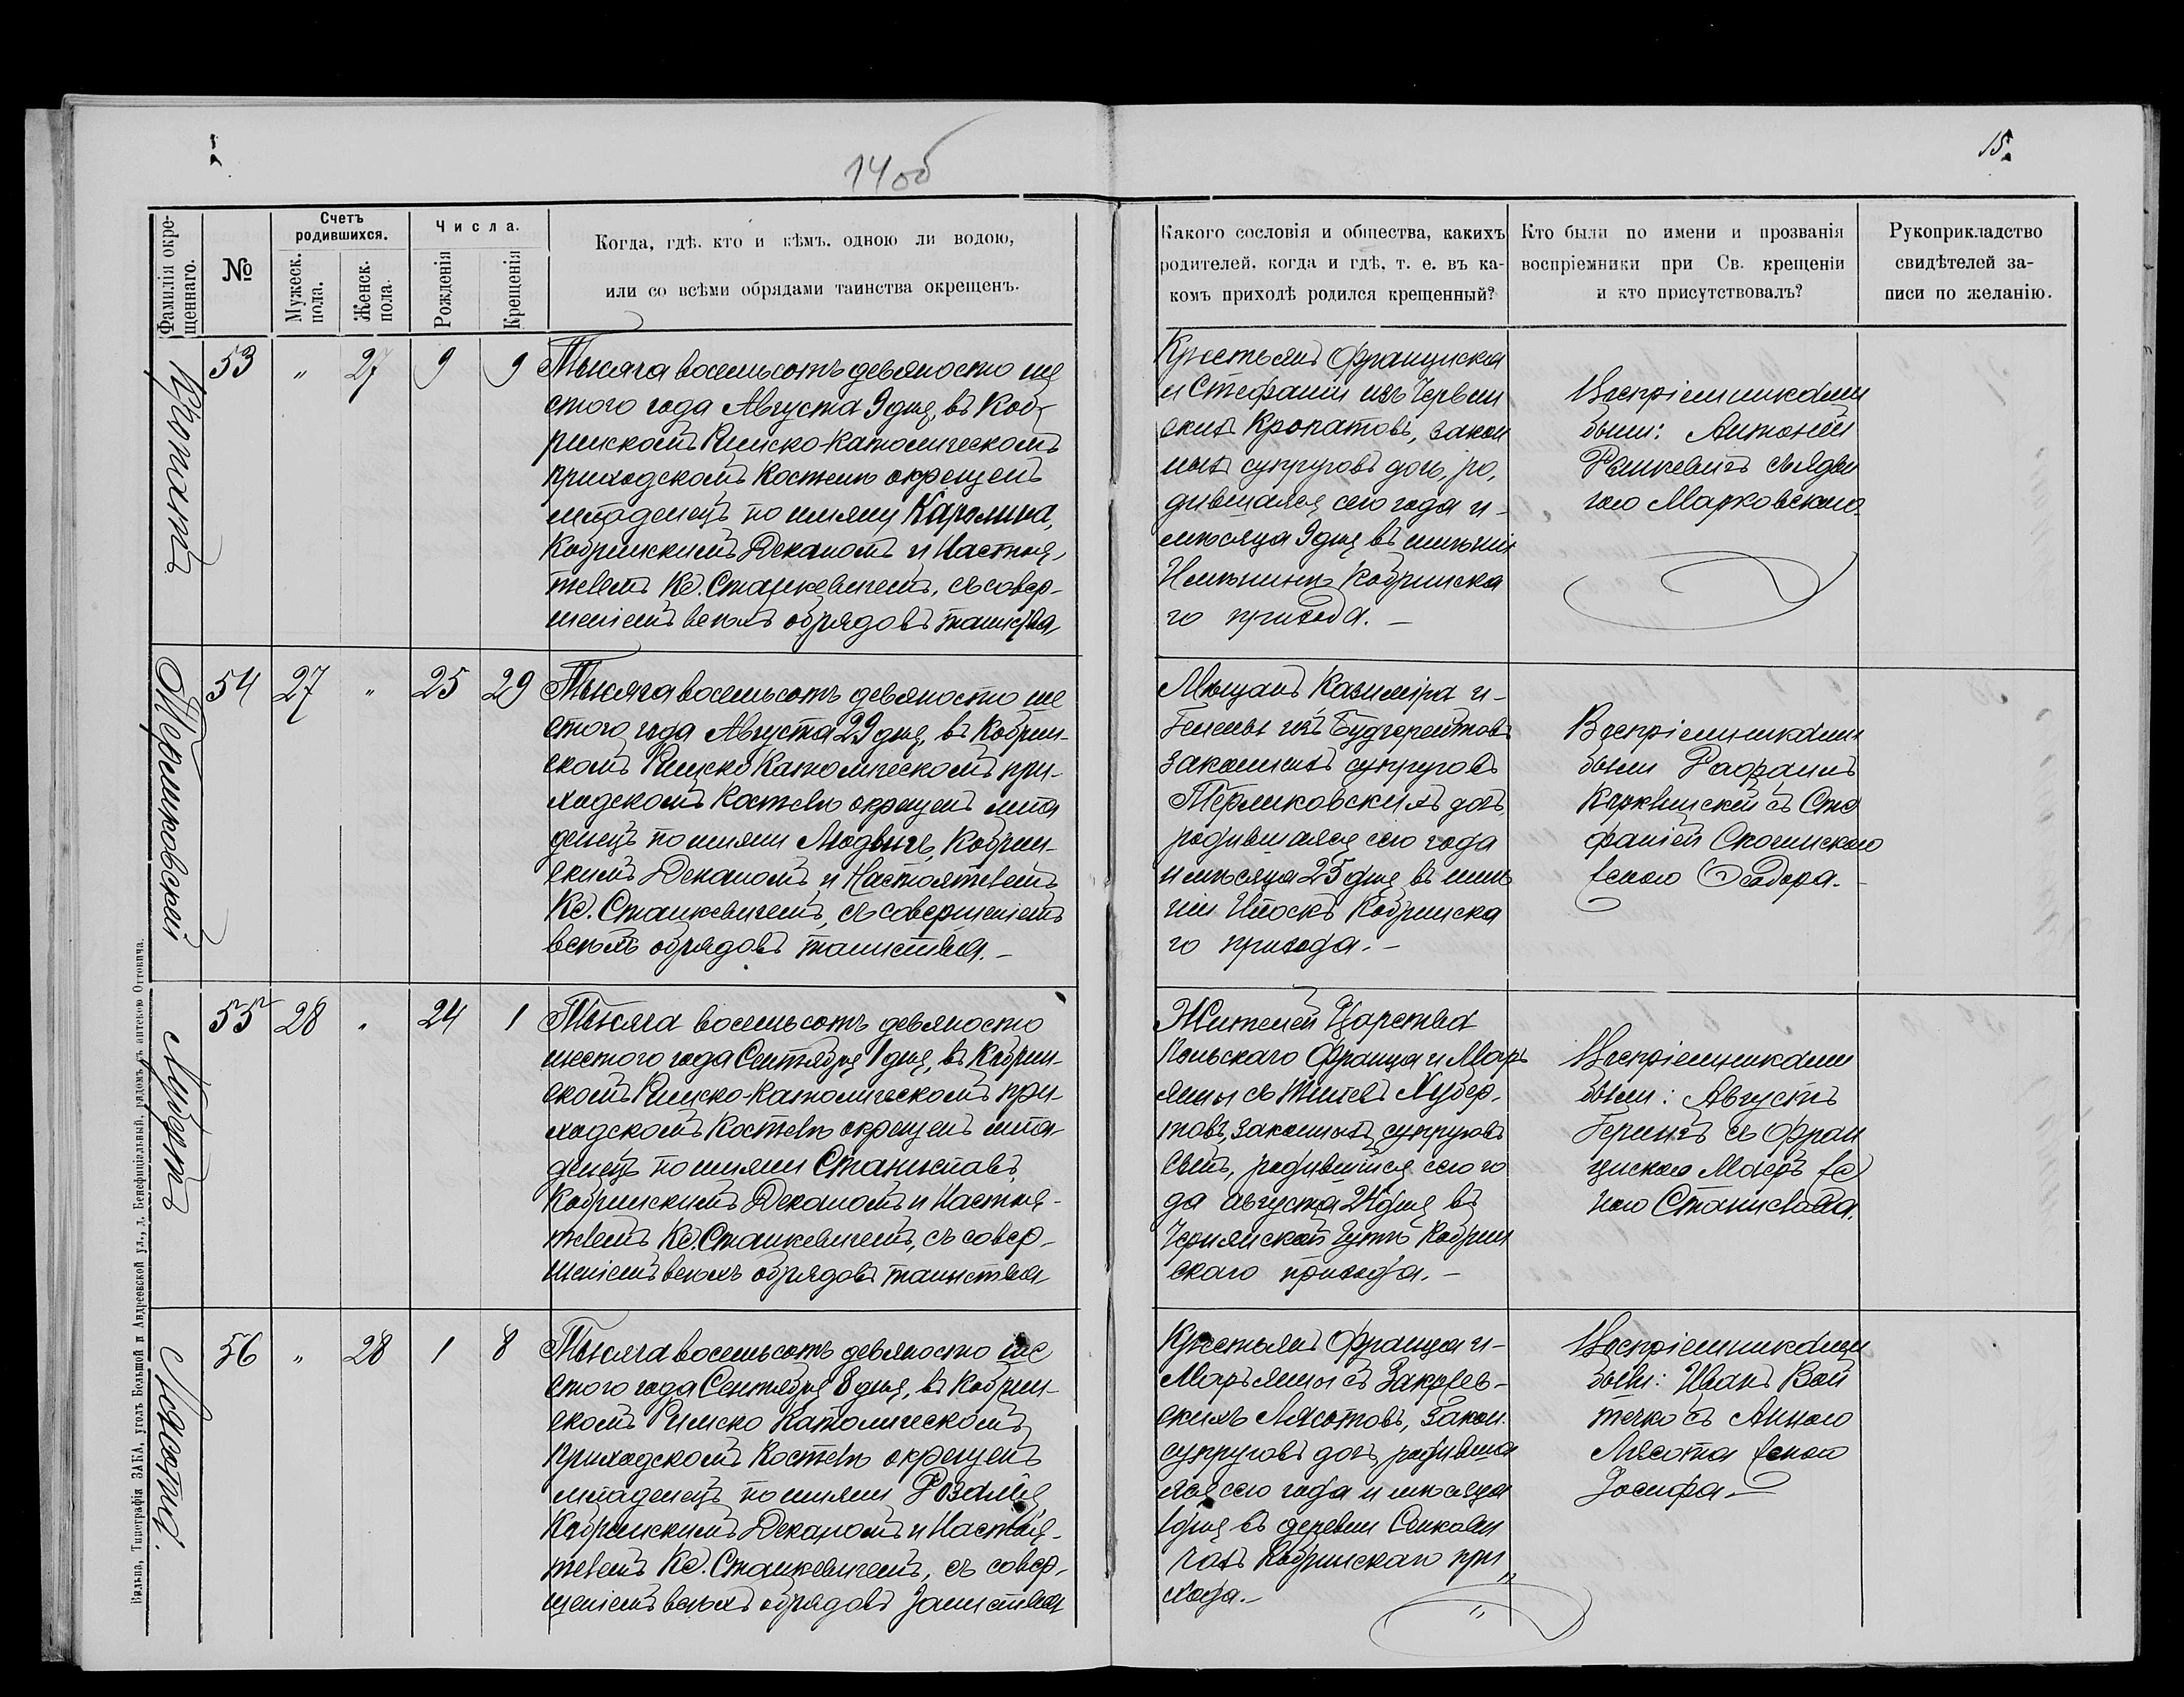 14 об
15.
Фамилія окре-
щеннаго.
№
Счетъ
родившихся.
Мужеск.
пола.
Женск.
пола.
Числа.
Рожденія
Крещенія
Когда, гдѣ, кто и кѣмъ, одною ли водою,
или со всѣми обрядами таинства окрещенъ.
Какого сословія и общества, какихъ
родителей, когда и гдѣ, т. е. въ ка-
комъ приходѣ родился крещенный?
Кто были по имени и прозванія
воспріемники при Св. крещеніи
и кто присутствовалъ?
Рукоприкладство
свидѣтелей за-
писи по желанію.
53 " 27 9 9
Тысяча восемьсотъ девяносто ше
стого года Августа 9 дня, въ Коб-
ринскомъ Римско-Католическомъ
приходскомъ Костелѣ окрещенъ
младенецъ по имяни Каролина,
Кобринскимъ Деканомъ и Настоя-
телемъ Кс. Станкевичемъ, съ совер-
шеніемъ всѣхъ обрядовъ таинства
Крестьянъ Франциска
и Стефаніи изъ Червин
скихъ Кропатовъ, закон
ныхъ супруговъ дочь, ро-
дившаяся сего года и-
мѣсяца 9 дня въ имѣніи
Кобринска
го прихода. -
Воспріемниками
были: Антоній
съ Ядви
гою Марковскою
54 27 " 25 29
Терликовскій
Тысяча восемьсотъ девяносто ше
стого года Августа 29 дня, въ Кобрин-
скомъ Римско Католическомъ при-
ходскомъ Костелѣ окрещенъ мла
денецъ по имяни Людвигъ, Кобрин-
скимъ Деканомъ и Настоятелемъ
Кс. Станкевичемъ, съ совершеніемъ
всѣхъ обрядовъ таинства. -
Мѣщанъ Казиміра и-
Елены изъ
законныхъ супруговъ
Терликовскихъ дочь,
родившаяся сего года
и мѣсяца 25 дня въ имѣ
ніи Кобринска
го прихода. -
Воспріемниками
были
съ Сте
фаніей
женою
55 28 " 24 1
Тысяча восемьсотъ девяносто
шестого года Сентября 1 дня, въ Кобрин-
скомъ Римско-Католическомъ при-
ходскомъ Костелѣ окрещенъ мла-
денецъ по имяни Станиславъ,
Кобринскимъ Деканомъ и Настоя-
телемъ Кс. Станкевичемъ, съ совер-
шеніемъ всѣхъ обрядовъ таинства
Жителей Царства
Польскаго Франца и Марь
янны
законныхъ супруговъ
сынъ, родившійся сего го
да августа 24 дня въ
Кобрин
скаго прихода. -
Воспріемниками
были: Августъ
съ Фран
цискою же
ною Станислава.
56 " 28 1 8
Лясота.
Тысяча восемьсотъ девяносто ше
стого года Сентября 8 дня, въ Кобрин-
скомъ Римско Католическомъ
приходскомъ Костелѣ окрещенъ
младенецъ по имяни Розалія,
Кобринскимъ Деканомъ и Настоя-
телемъ Кс. Станкевичемъ, съ совер-
шеніемъ всѣхъ обрядовъ таинства
Крестьянъ Франца и-
Марьянны съ Закрев-
скихъ Лясотовъ, Закон.
супруговъ дочь, родивша
яся сего года и мѣсяца
1 дня въ деревни
Кобринскаго при
хода. -
Воспріемниками
были: Иванъ Вой
течко съ Анною
Лясота женою
Іосифа. -
Вильна, Типографія ЗАКА, уголъ Большой и Андреевской ул., д. Бенефиціальный, рядомъ съ аптекою Оттовича.